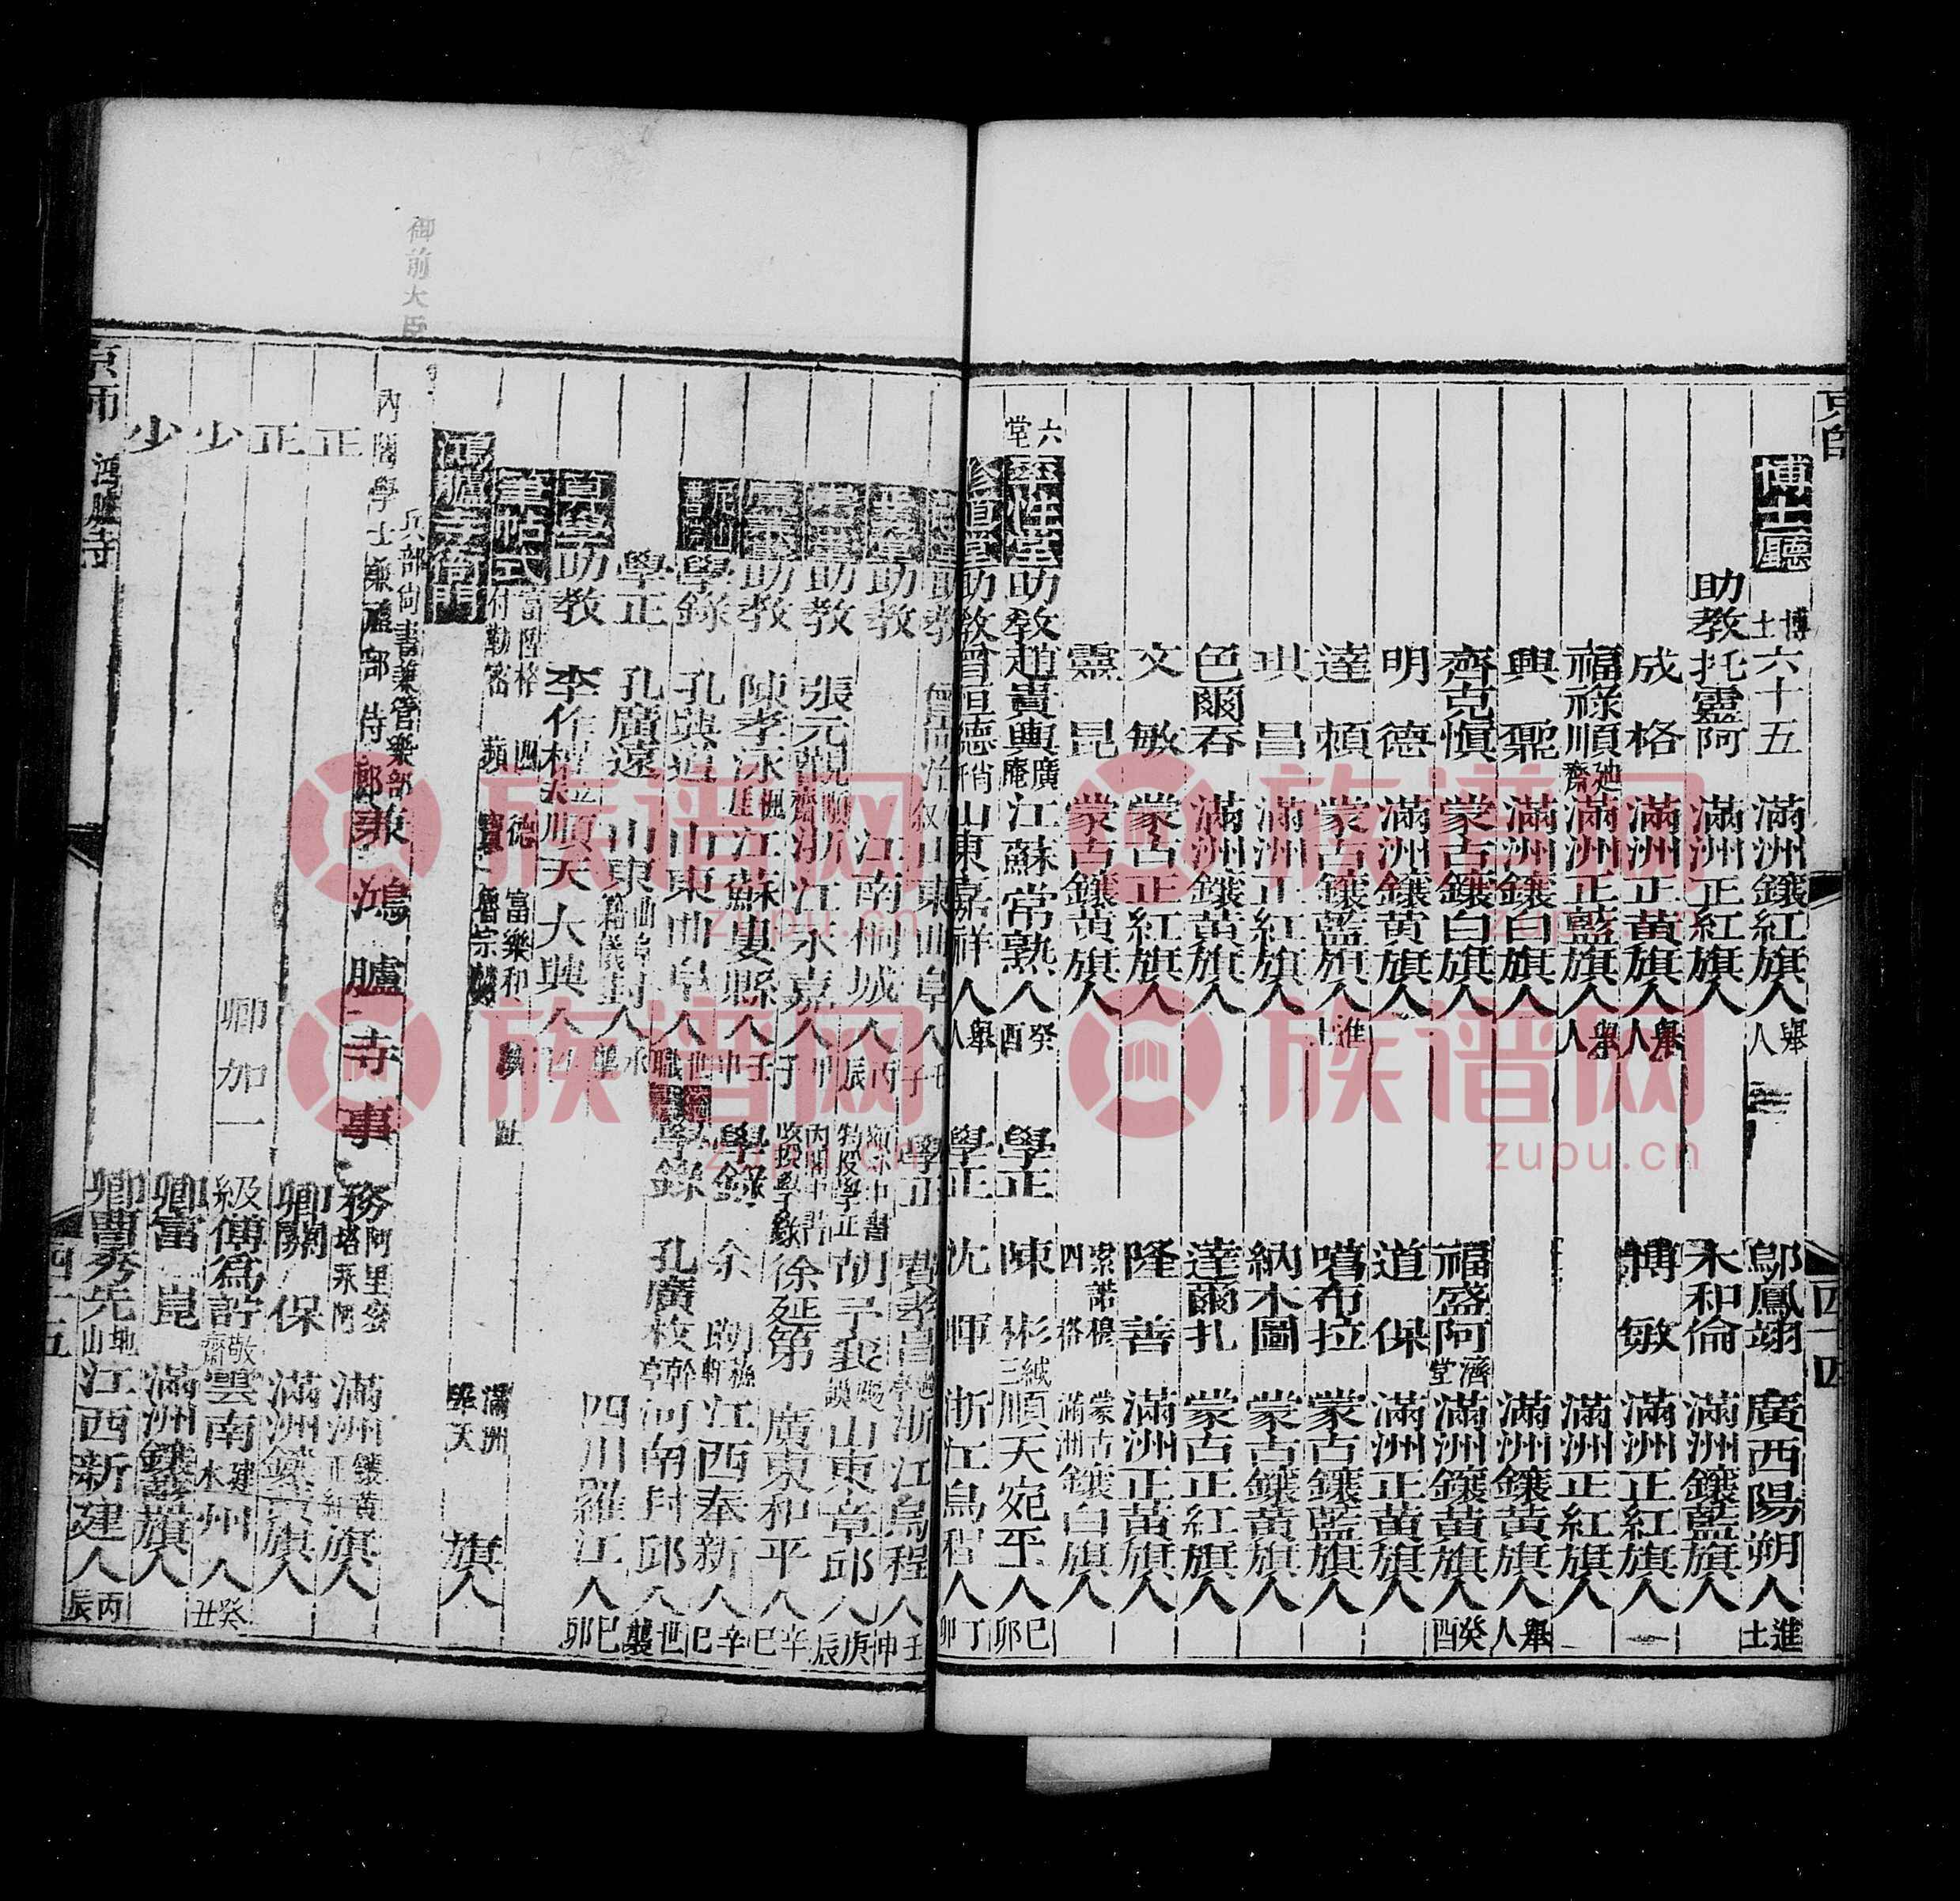 京師
博士廳 博士 六十五 滿洲鑲紅旗人 舉人
鄔鳳翊 廣西陽朔人 進士
助教 托靈阿 滿洲正紅旗人
木和倫 滿洲鑲藍旗人
成格 滿洲正黃旗人 舉人
博敏 滿洲正紅旗人
福祿順 滿洲正藍旗人 舉人
滿洲正紅旗人
興鼐 滿洲鑲白旗人
滿洲鑲黃旗人 舉人
齊克慎 蒙古鑲白旗人
福盛阿 濟堂 滿洲鑲黃旗人 癸酉
明德 滿洲鑲黃旗人
道保 滿洲正黃旗人
達賴 蒙古鑲藍旗人 進士
噶布拉 蒙古鑲藍旗人
珙昌 滿洲正紅旗人
納木圖 蒙古鑲黃旗人
色爾吞 滿洲鑲黃旗人
達爾扎 蒙古正紅旗人
文敏 蒙古正紅旗人
隆善 滿洲正黃旗人
靈昆 蒙古鑲黃旗人
索諾穆 四格 蒙古 滿洲鑲白旗人
六堂 率性堂 助教 趙貴典 廣庵 江蘇常熟人 癸酉
學正 陳彬 緘三 順天宛平人 己卯
修道堂 助教 曾恒德 山東嘉祥人 舉人
學正 沈暉 浙江烏程人 丁卯
四十四
助教 山東曲阜人
學正 費孝昌 浙江烏程人 壬申
助教 江南桐城人 丙辰
胡予襄 山東章邱人 庚辰
助教 張元觀 浙江永嘉人
徐延第 廣東和平人 辛巳
助教 陳孝泳 江蘇婁縣人 壬申
學錄 余 江西奉新人 辛巳
學錄 孔興道 山東曲阜人 世職
學錄 孔廣枚 幹亭 河南封邱人 世襲
學正 孔廣遠 山東
四川羅江人 己卯
算學 助教 李作楫 順天大興人
筆帖式 富陞格 付勒密 四德 蘋寶 富樂和
滿洲 奉天 旗人
鴻臚寺衙門
兵部尚書兼管樂部
內閣學士兼禮部侍郎兼鴻臚寺事務 阿里袞 塔永阿 滿洲 鑲黃 正紅 旗人
御前大臣
正卿 關保 滿洲鑲黃旗人
正卿加一級 傅為詝 敬齋 雲南建水州人 癸丑
少卿 富崑 滿洲鑲藍旗人
少卿 曹秀先 地山 江西新建人 丙辰
京師 鴻臚寺 四十五
族谱网
zupu.cn
族谱网
zupu.cn
族谱网
zupu.cn
族谱网
zupu.cn